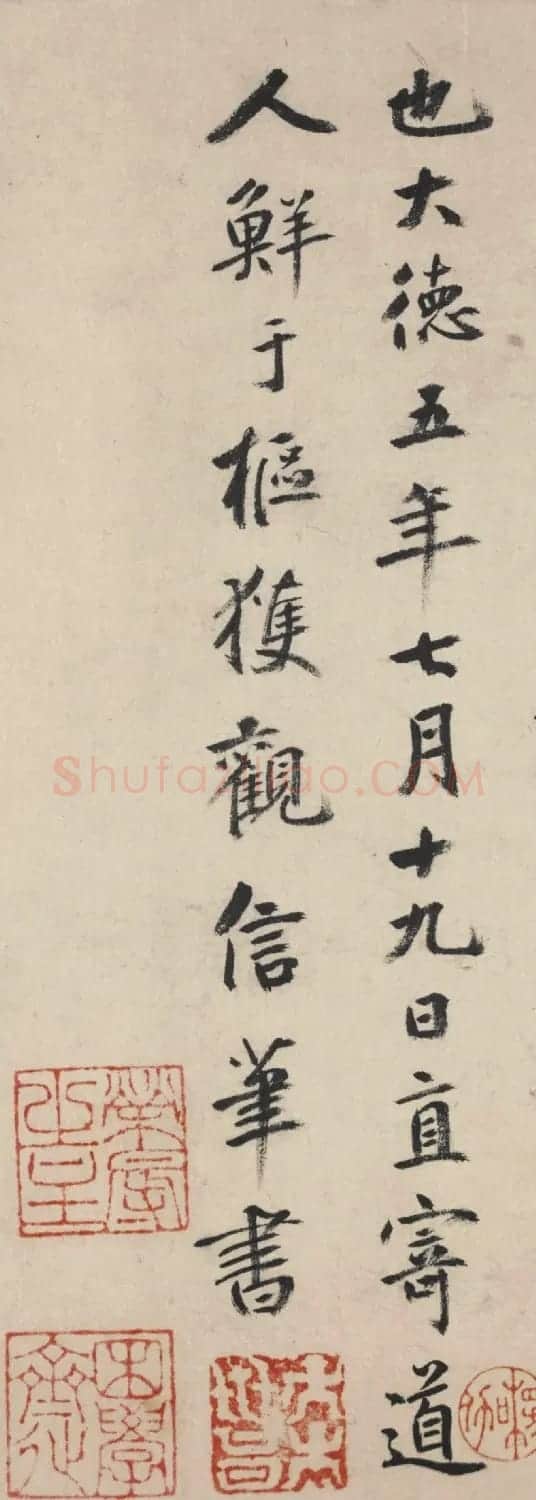 也大德五年七月十九日直寄道
人鮮于樞獲觀信筆書
Shufaziliao.COM